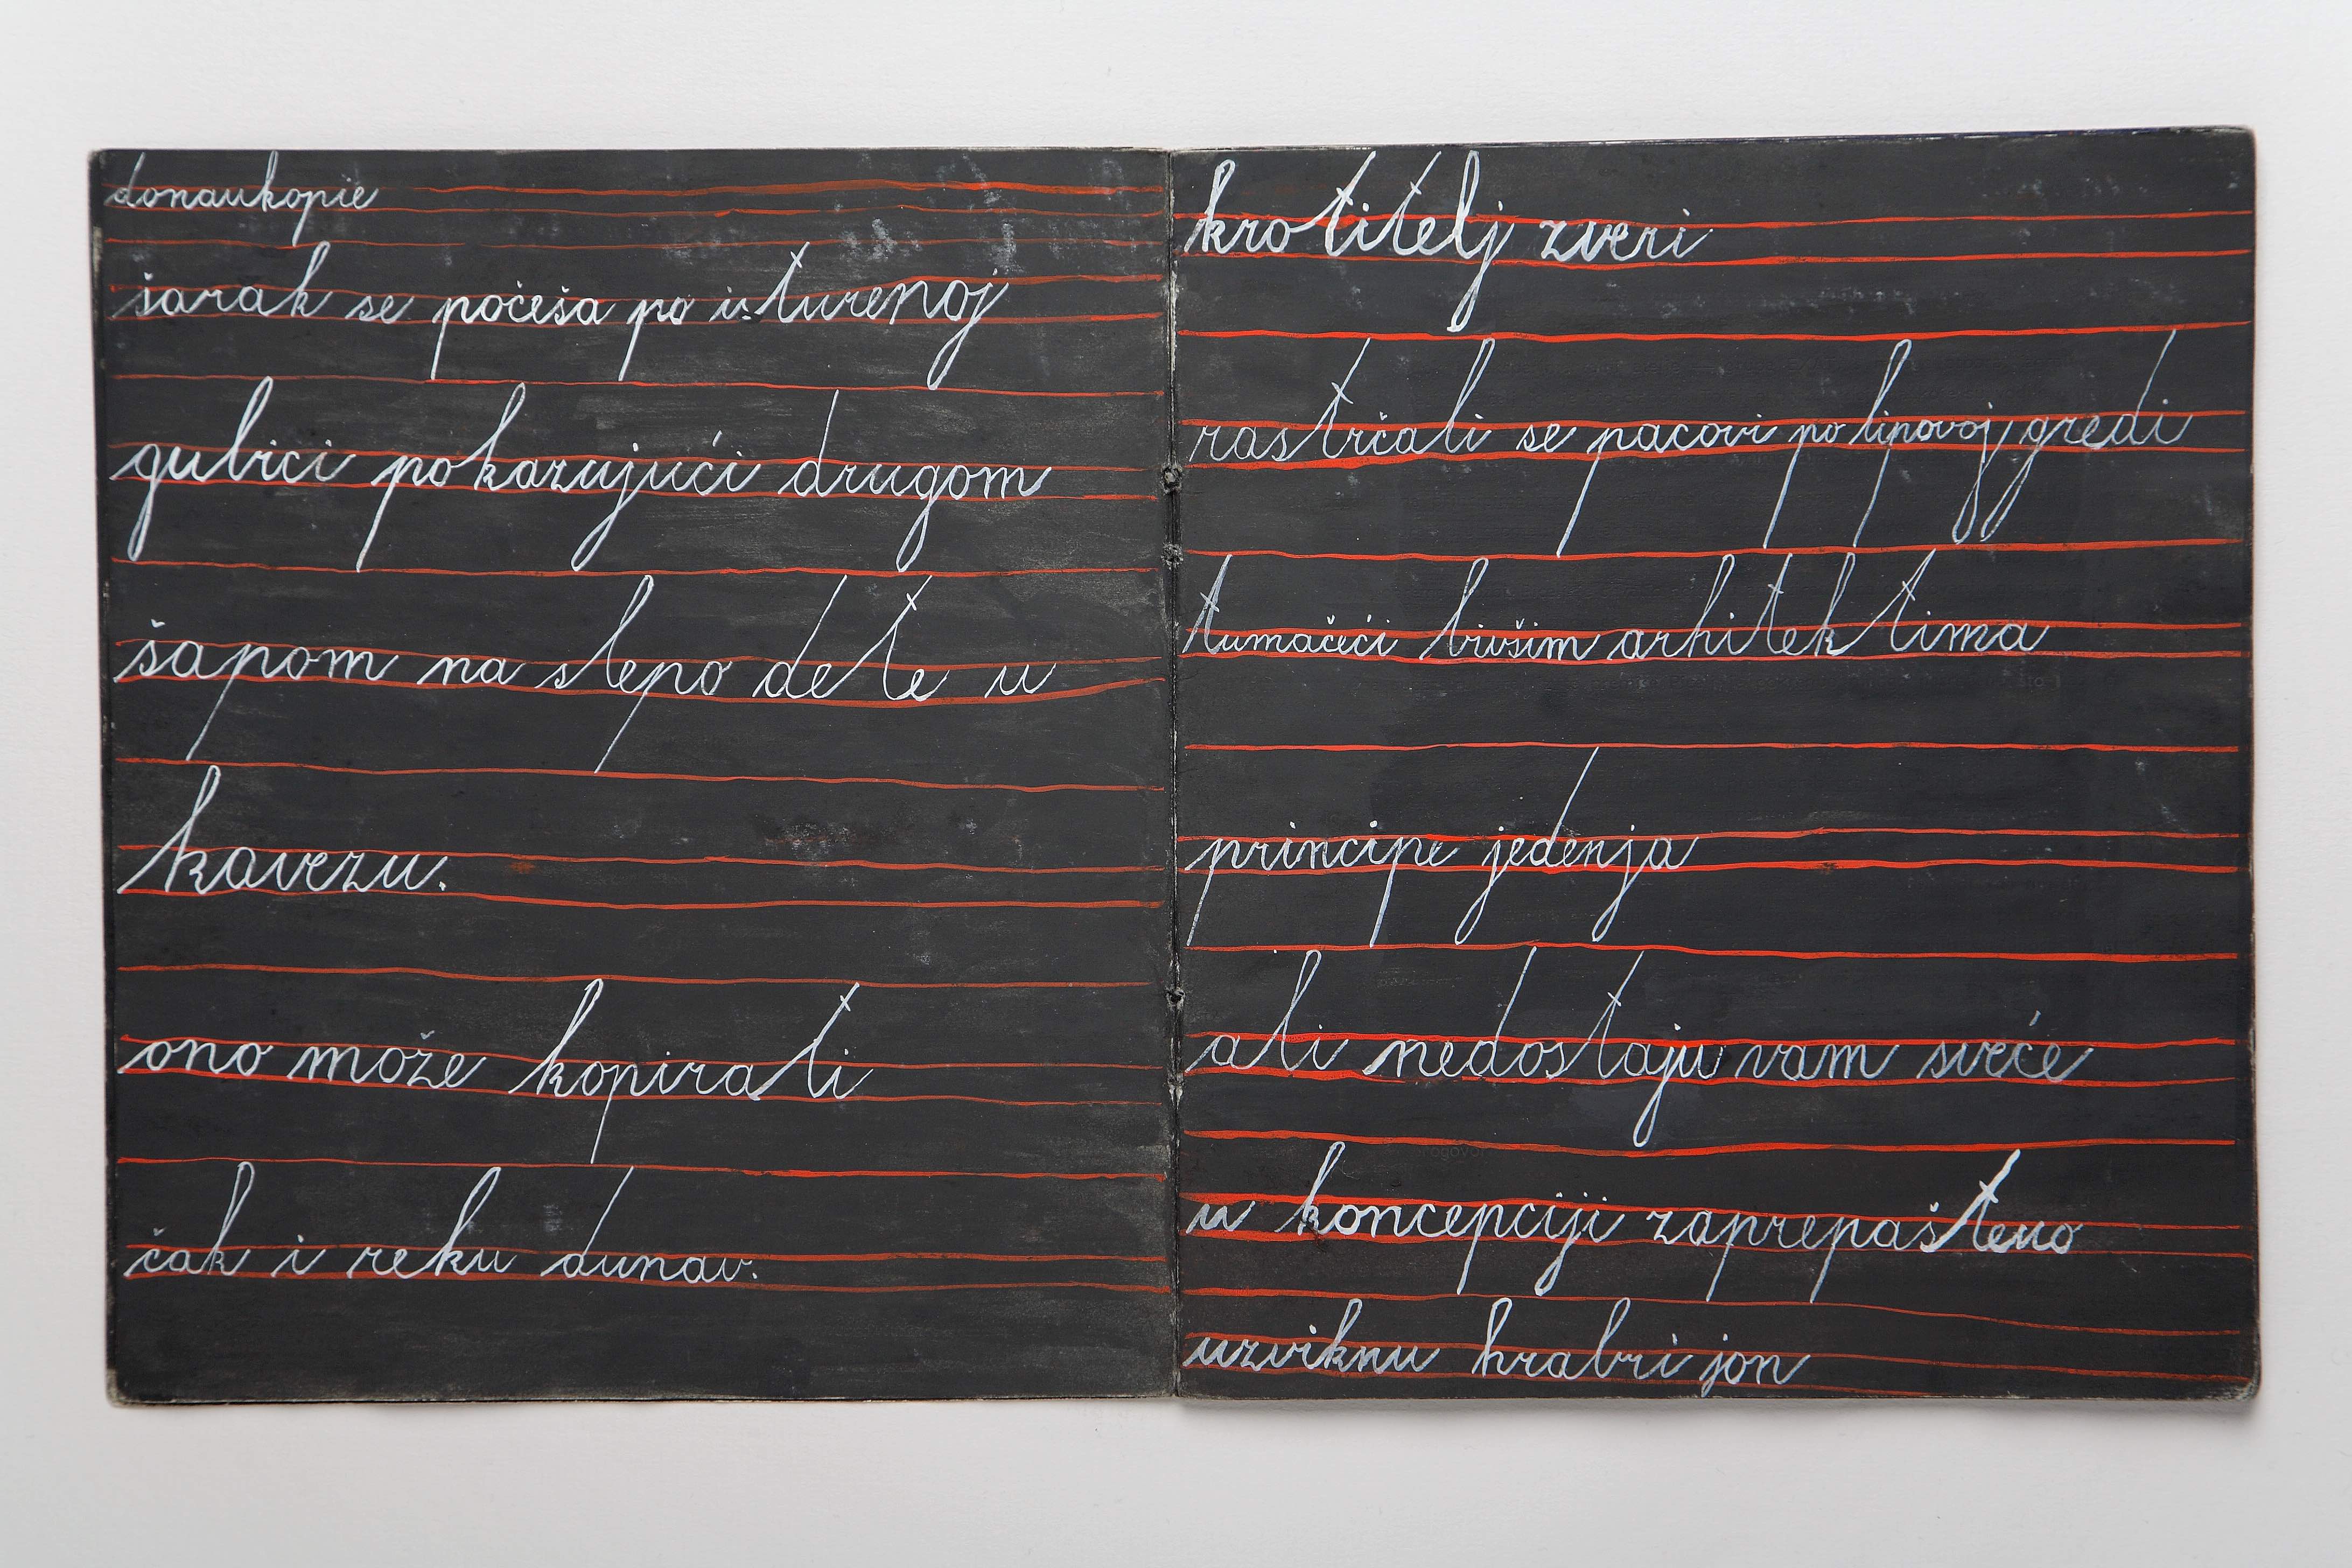 donaukopie
šarak se počeša po isturenoj
gubici pokazujući drugom
šapom na slepo dete u
kavezu.
ono može kopirati
čak i reku dunav.
krotitelj zveri
rastrčali se pacovi po lipovoj gredi
tumačeći bivšim arhitektima
principe jedenja
ali nedostaju vam sveće
u koncepciji zaprepašteno
uzviknu hrabri jon